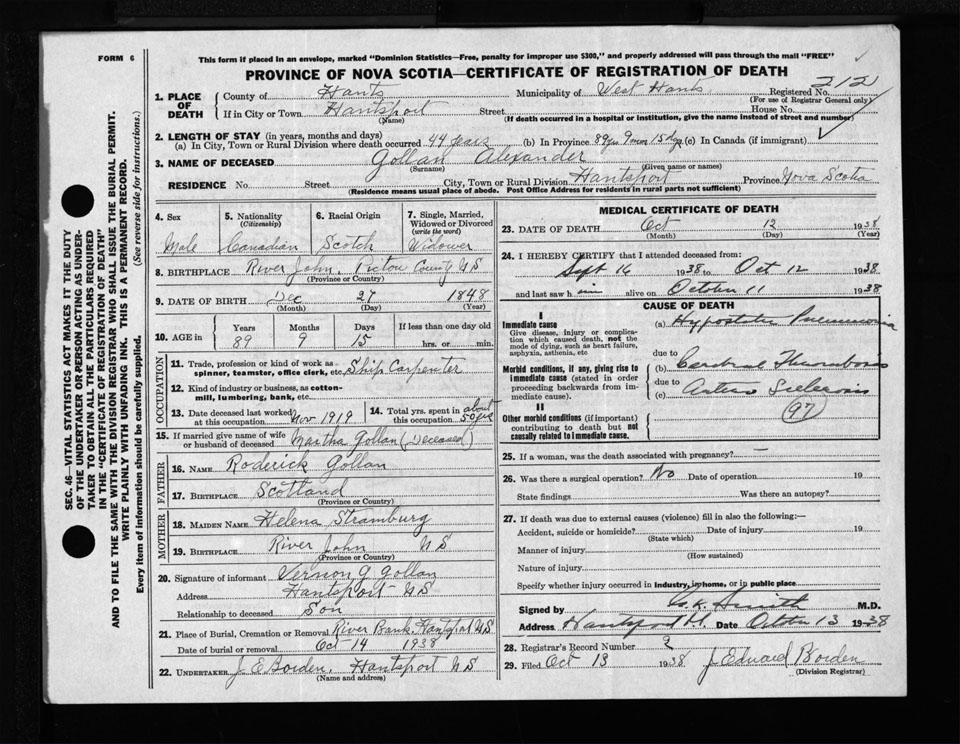 FORM 6
This form if placed in an envelope, marked "Dominion Statistics—Free, penalty for improper use $300," and properly addressed will pass through the mail "FREE"
PROVINCE OF NOVA SCOTIA—CERTIFICATE OF REGISTRATION OF DEATH
212
1. PLACE OF DEATH
County of Hants Municipality of West Hants Registered No.
(For use of Registrar General only)
If in City or Town Hantsport Street House No.
(Name) (If death occurred in a hospital or institution, give the name instead of street and number)
2. LENGTH OF STAY (in years, months and days)
(a) In City, Town or Rural Division where death occurred 44 years (b) In Province 89 yrs 9 mon 15 dys (c) In Canada (if immigrant)
3. NAME OF DECEASED Gollan Alexander
(Surname) (Given name or names)
RESIDENCE No. Street City, Town or Rural Division Hantsport Province Nova Scotia
(Residence means usual place of abode. Post Office Address for residents in rural parts not sufficient)
SEC. 46—VITAL STATISTICS ACT MAKES IT THE DUTY
OF THE UNDERTAKER OR PERSON ACTING AS UNDER-
TAKER TO OBTAIN ALL THE PARTICULARS REQUIRED
IN THE "CERTIFICATE OF REGISTRATION OF DEATH"
AND TO FILE THE SAME WITH THE DIVISION REGISTRAR WHO SHALL ISSUE THE BURIAL PERMIT.
WRITE PLAINLY WITH UNFADING INK. THIS IS A PERMANENT RECORD.
Every item of information should be carefully supplied. (See reverse side for instructions.)
4. Sex
Male
5. Nationality
(Citizenship)
Canadian
6. Racial Origin
Scotch
7. Single, Married,
Widowed or Divorced
(write the word)
Widower
8. BIRTHPLACE River John, Pictou County NS
(Province or Country)
9. DATE OF BIRTH Dec 27 1848
(Month) (Day) (Year)
10. AGE in Years Months Days If less than one day old
89 9 15 hrs. or min.
OCCUPATION
11. Trade, profession or kind of work as
spinner, teamster, office clerk, etc. Ship Carpenter
12. Kind of industry or business, as cotton-
mill, lumbering, bank, etc.
13. Date deceased last worked
at this occupation Nov 1919
14. Total yrs. spent in
this occupation about 50 yrs
15. If married give name of wife
or husband of deceased Martha Gollan (Deceased)
FATHER
16. NAME Roderick Gollan
17. BIRTHPLACE Scotland
(Province or Country)
MOTHER
18. MAIDEN NAME Helena Stramburg
19. BIRTHPLACE River John NS
(Province or Country)
20. Signature of informant Vernon G Gollan
Address Hantsport NS
Relationship to deceased Son
21. Place of Burial, Cremation or Removal River Bank, Hantsport NS
Date of burial or removal Oct 14 1938
22. UNDERTAKER J. E Borden, Hantsport NS
(Name and address)
MEDICAL CERTIFICATE OF DEATH
23. DATE OF DEATH Oct 12 1938
(Month) (Day) (Year)
24. I HEREBY CERTIFY that I attended deceased from:
Sept 16 1938 to Oct 12 1938
and last saw him alive on October 11 1938
CAUSE OF DEATH
I
Immediate cause
Give disease, injury or complica-
tion which caused death, not the
mode of dying, such as heart failure,
asphyxia, asthenia, etc
(a) Hypostatic Pneumonia
due to
Morbid conditions, if any, giving rise to
immediate cause (stated in order
proceeding backwards from im-
mediate cause).
(b) Cerebral Thrombosis
due to
(c) Arterio Sclerosis
97
II
Other morbid conditions (if important)
contributing to death but not
causally related to immediate cause.
25. If a woman, was the death associated with pregnancy? —
26. Was there a surgical operation? No Date of operation 19
State findings Was there an autopsy?
27. If death was due to external causes (violence) fill in also the following:—
Accident, suicide or homicide? Date of injury 19
(State which)
Manner of injury
(How sustained)
Nature of injury
Specify whether injury occurred in industry, in home, or in public place
Signed by Smith M.D.
Address Hantsport Date October 13 1938
28. Registrar's Record Number 9
29. Filed Oct 13 1938 J. Edward Borden
(Division Registrar)